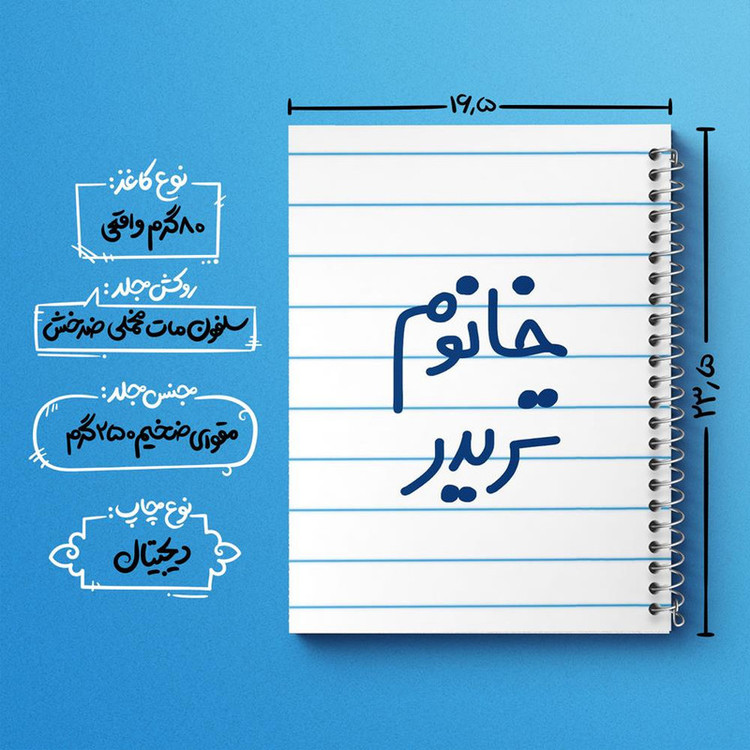 ۱۶٫۵
۲۳٫۵
خانوم
تریدر
نوع کاغذ:
۸۰ گرم واقعی
روکش جلد:
سلفون مات مخملی ضدخش
جنس جلد:
مقوای ضخیم ۲۵۰ گرم
نوع چاپ:
دیجیتال